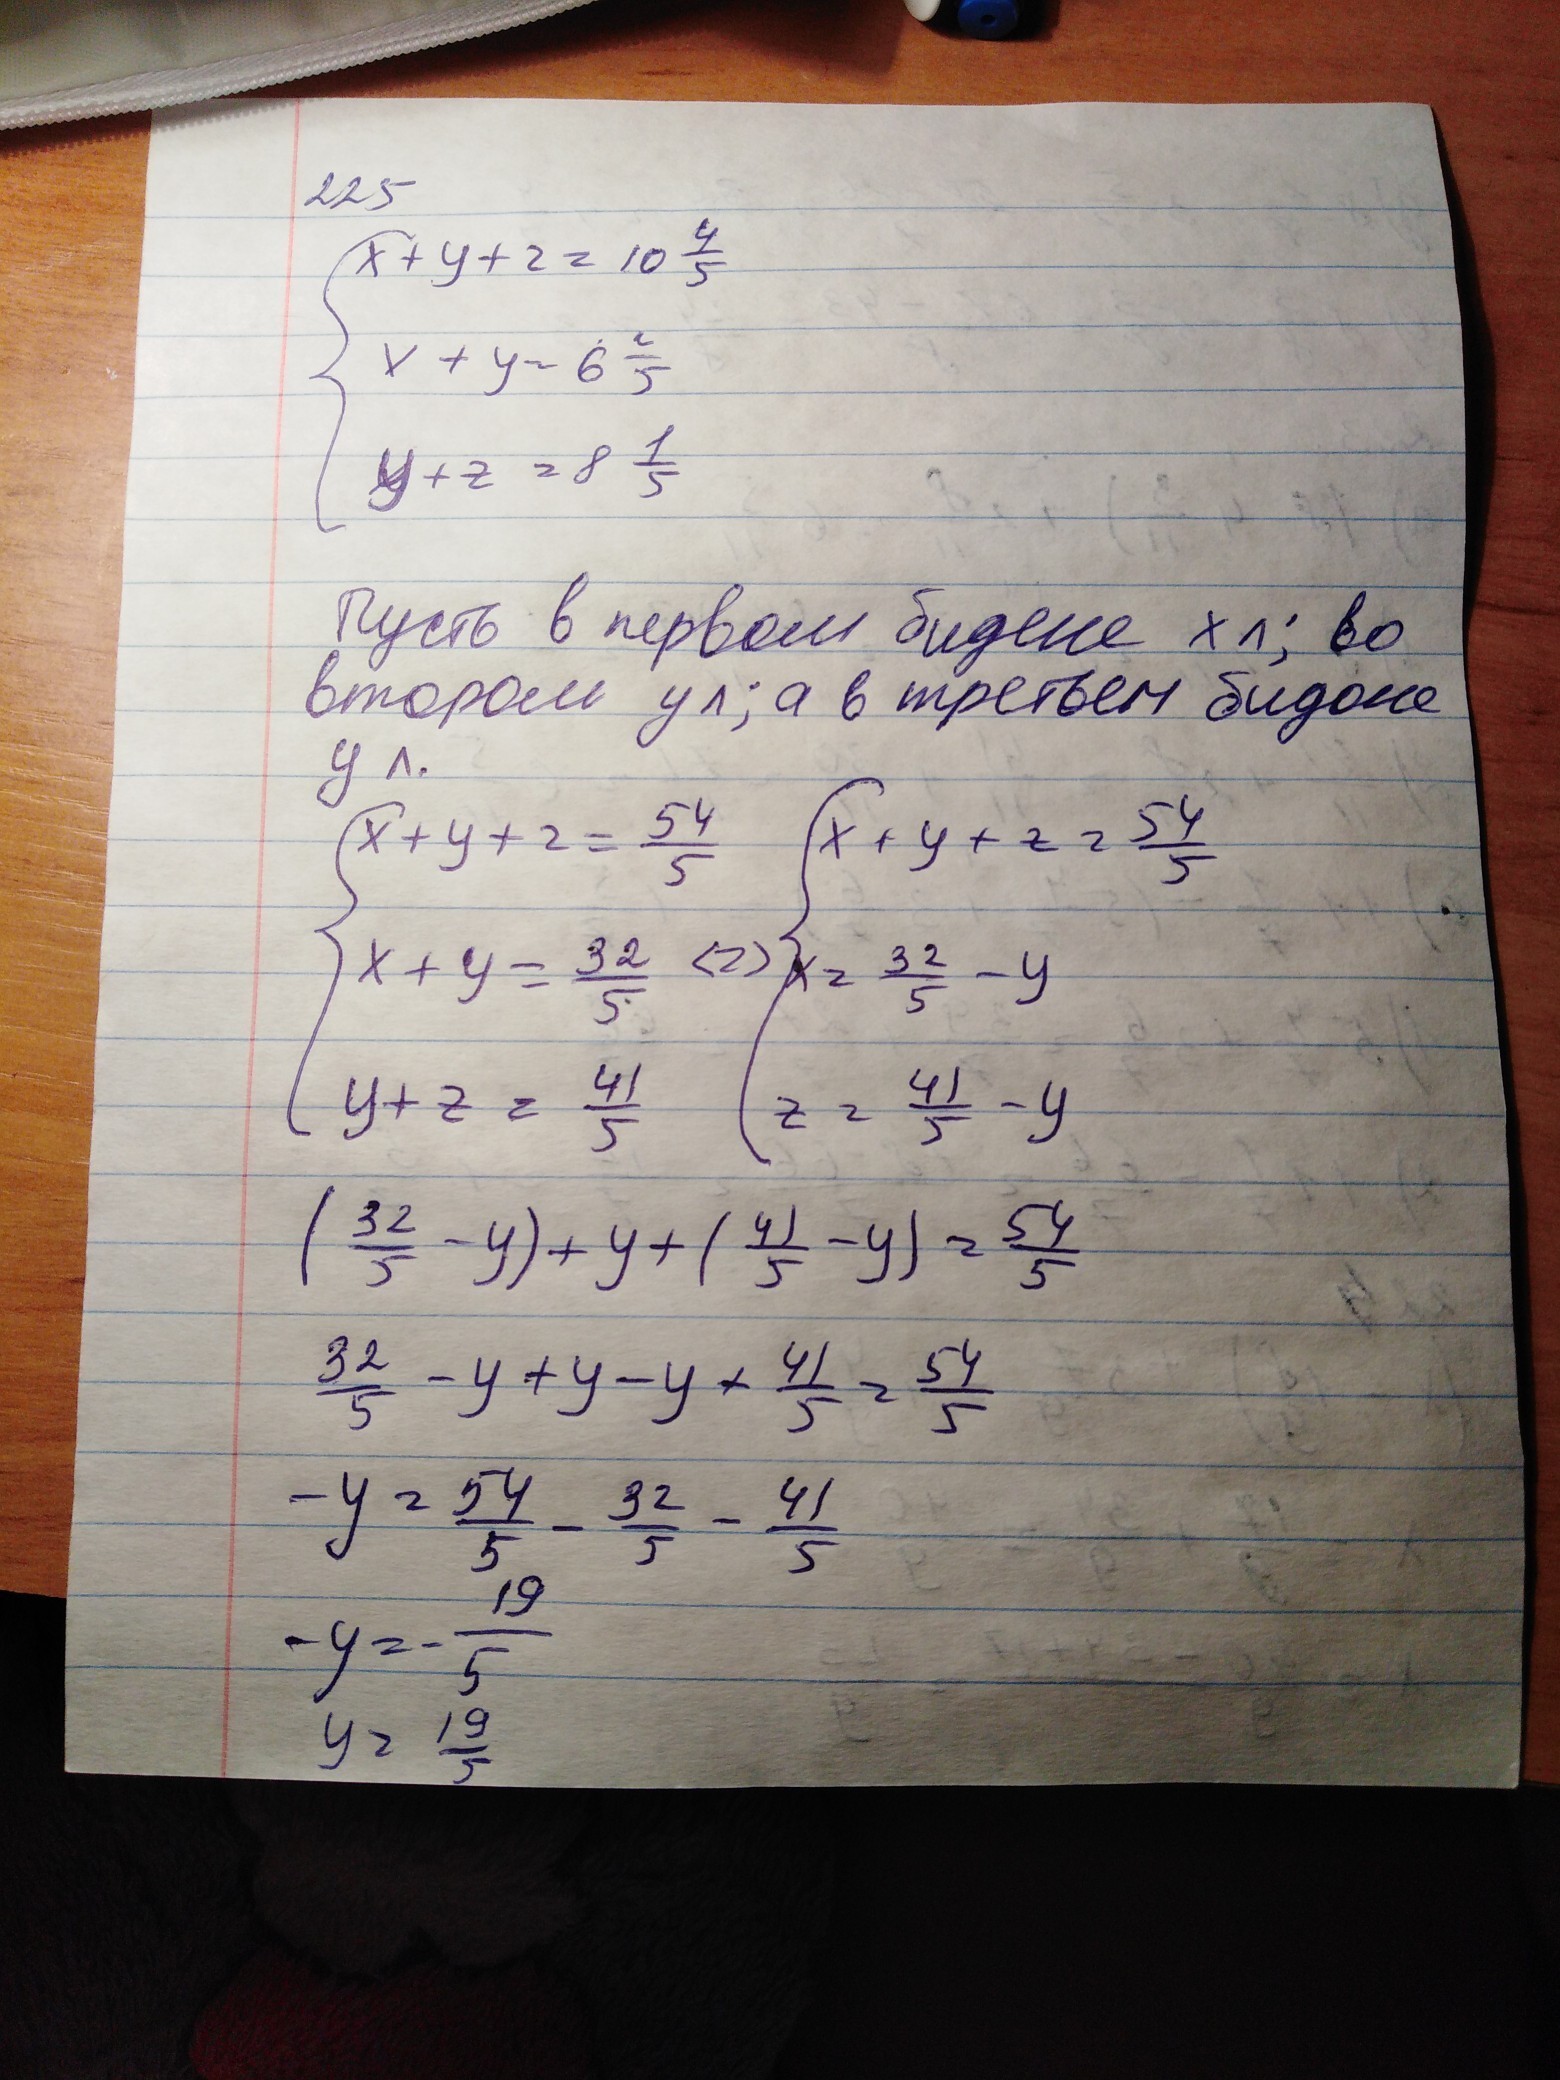 225
x + y + z = 10 4/5
x + y = 6 2/5
y + z = 8 1/5
Пусть в первом бидоне x л; во
втором y л; а в третьем бидоне
y л.
x + y + z = 54/5 x + y + z = 54/5
x + y = 32/5 <=> x = 32/5 - y
y + z = 41/5 z = 41/5 - y
(32/5 - y) + y + (41/5 - y) = 54/5
32/5 - y + y - y + 41/5 = 54/5
-y = 54/5 - 32/5 - 41/5
-y = -19/5
y = 19/5